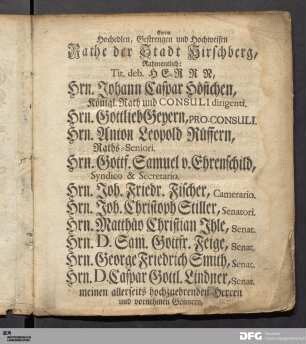 Einem
Hochedlen, Gestrengen und Hochweisen
Rathe der Stadt Hirschberg,
Nahmentlich:
Tit. deb. HERRN,
Hrn. Johann Caspar Höflichen,
Königl. Rath und CONSULI dirigenti.
Hrn. Gottlieb Geyern, PRO-CONSULI.
Hrn. Anton Leopold Rüffern,
Raths-Seniori.
Hrn. Gottf. Samuel v. Ehrenschild,
Syndico & Secretario.
Hrn. Joh. Friedr. Fischer, Camerario.
Hrn. Joh. Christoph Stiller, Senatori.
Hrn. Matthäo Christian Ihle, Senat.
Hrn. D. Sam. Gottfr. Feige, Senat.
Hrn. George Friedrich Smith, Senat.
Hrn. D. Caspar Gottl. Lindner, Senat.
meinen allerseits hochzuehrenden Herren
und vornehmen Gönnern.
DFG